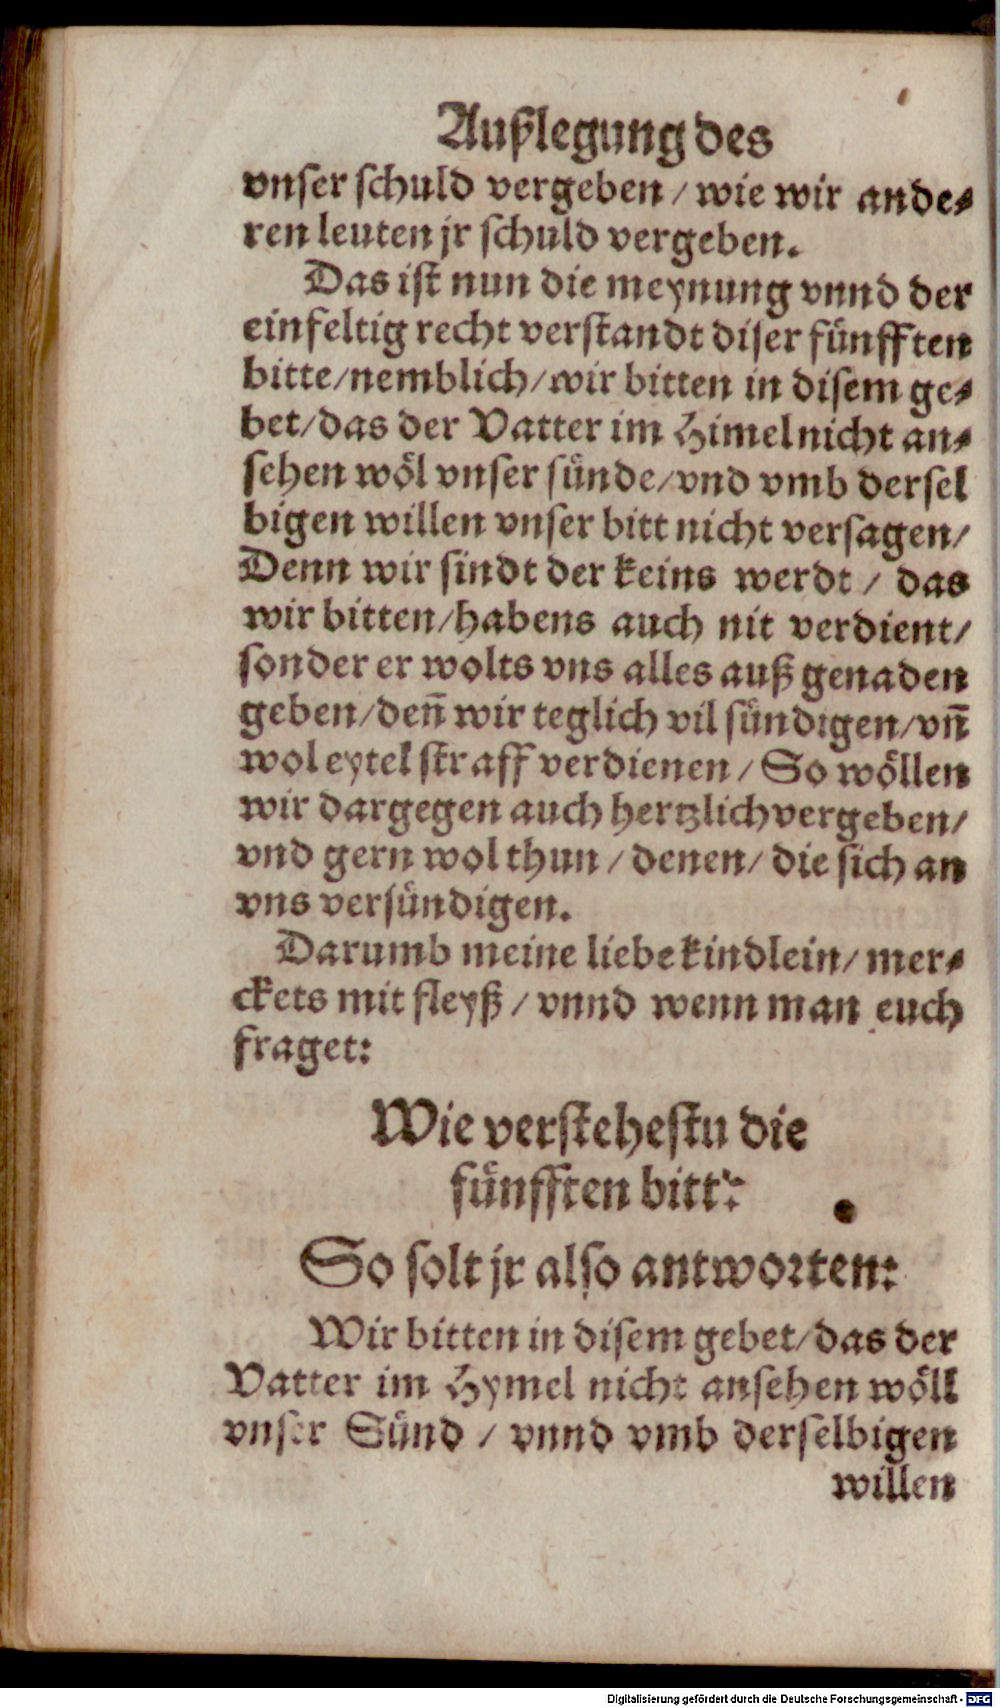 Außlegung des
vnser schuld vergeben / wie wir ande⸗
ren leuten jr schuld vergeben.
Das ist nun die meynung vnnd der
einfeltig recht verstandt diser fünfften
bitte/nemblich/wir bitten in disem ge⸗
bet/das der Vatter im Himel nicht an⸗
sehen wöl vnser sünde/vnd vmb dersel
bigen willen vnser bitt nicht versagen/
Denn wir sindt der keins werdt / das
wir bitten/habens auch nit verdient/
sonder er wolts vns alles auß genaden
geben/deñ wir teglich vil sündigen/vñ
wol eytel straff verdienen / So wöllen
wir dargegen auch hertzlich vergeben/
vnd gern wol thun / denen/ die sich an
vns versündigen.
Darumb meine liebe kindlein/ mer⸗
ckets mit fleyß / vnnd wenn man euch
fraget:
Wie verstehestu die
fünfften bitt?
So solt jr also antworten:
Wir bitten in disem gebet/das der
Vatter im Hymel nicht ansehen wöll
vnser Sünd / vnnd vmb derselbigen
willen
Digitalisierung gefördert durch die Deutsche Forschungsgemeinschaft - DFG